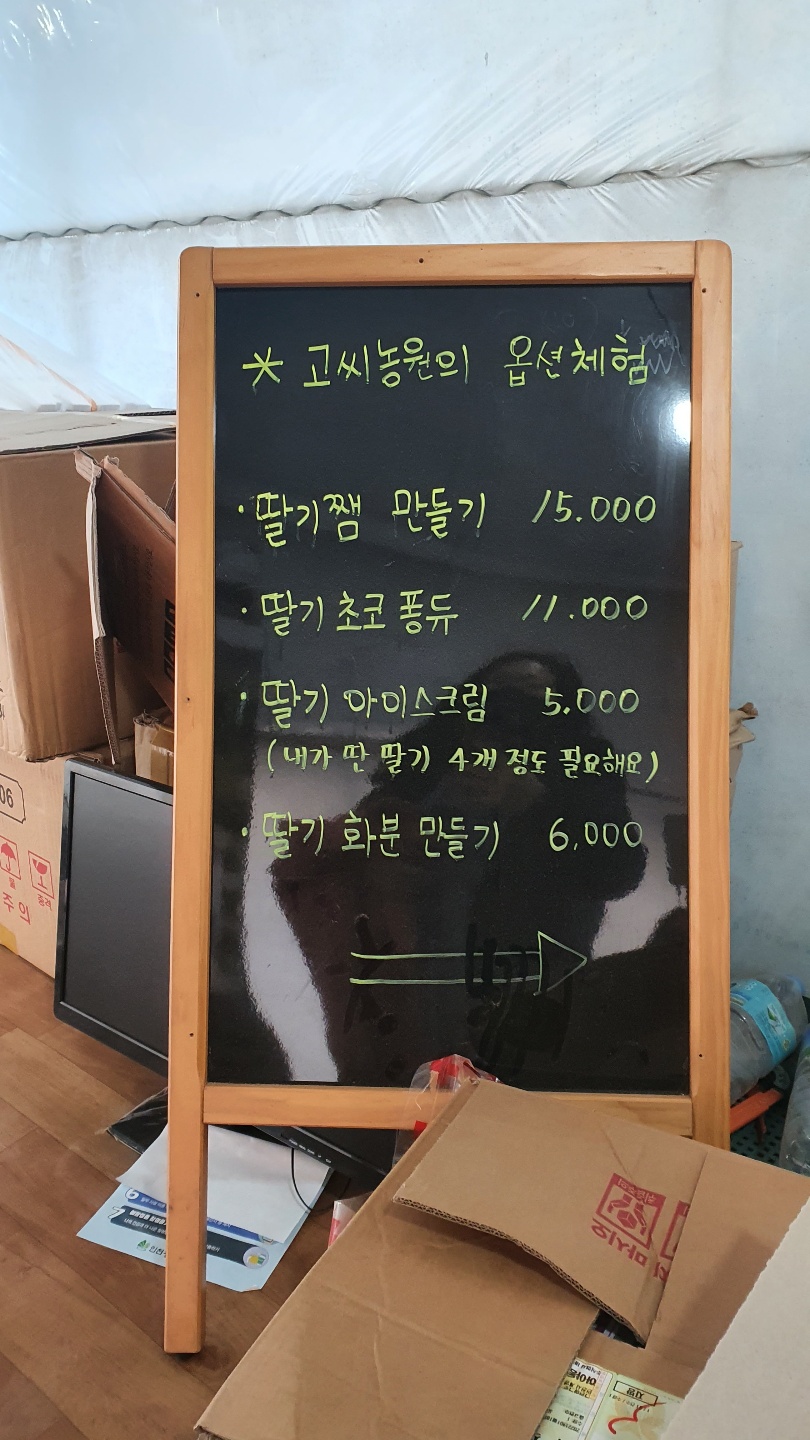 * 고씨농원의 옵션체험
· 딸기쨈 만들기 15.000
· 딸기 초코 퐁듀 11.000
· 딸기 아이스크림 5.000
(내가 딴 딸기 4개 정도 필요해요)
· 딸기 화분 만들기 6.000
06
주의